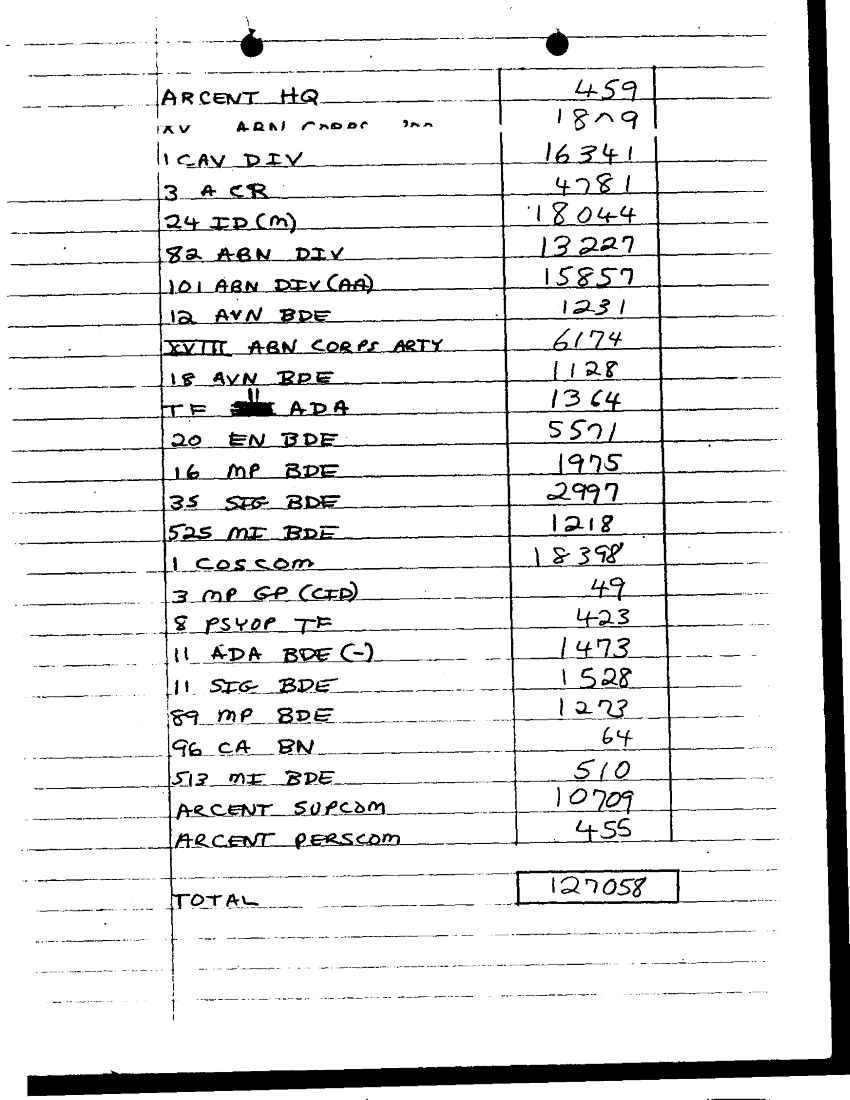 ARCENT HQ 459
ABN CORPS 1809
1 CAV DIV 16341
3 ACR 4781
24 ID (M) 18044
82 ABN DIV 13227
101 ABN DIV (AA) 15857
12 AVN BDE 1231
XVIII ABN CORPS ARTY 6174
18 AVN BDE 1128
TF 11 ADA 1364
20 EN BDE 5571
16 MP BDE 1975
35 SIG BDE 2997
525 MI BDE 1218
1 COSCOM 18398
3 MP GP (CID) 49
8 PSYOP TF 423
11 ADA BDE (-) 1473
11 SIG BDE 1528
89 MP BDE 1273
96 CA BN 64
513 MI BDE 510
ARCENT SUPCOM 10709
ARCENT PERSCOM 455
TOTAL 127058